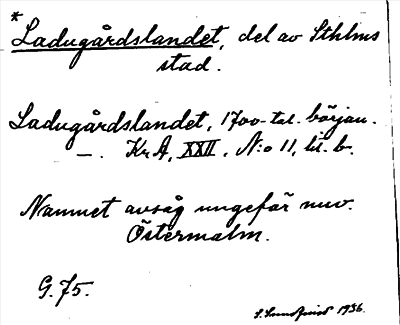 * Ladugårdslandet, del av Sthlms
stad.
Ladugårdslandet, 1700-tal. början.
—. KrA, XXII, N:o 11, lit. b.
Namnet avsåg ungefär nuv.
Östermalm.
G. 75.
1936.